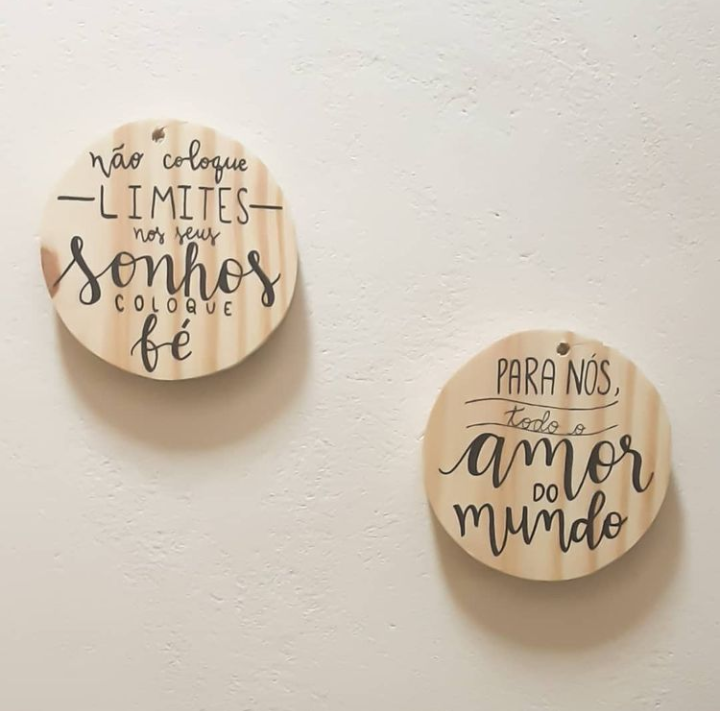 não coloque
LIMITES
nos seus
sonhos
COLOQUE
fé
PARA NÓS,
todo o
amor
DO
mundo